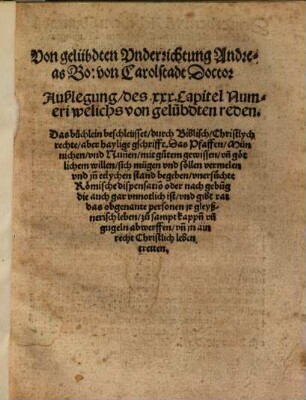 Von gelübdten Vnderrichtung Andre-
as Bo: von Carolstadt Doctor
Außlegung/des xxx. Capitel Num-
eri welichs von gelübdten reden.
Das büchlein beschleüsset/durch Biblisch/Christlych
rechte/aber haylige gschrifft. Das Pfaffen/Mün
nichen/vnd Nunnen/mit gůtem gewissen/vñ göt
lichem willen/sich mügen vnd söllen vermelen
vnd jn eelychen stand begeben/vnersůchte
Römische dispensatiõ oder nach gebüg
die auch gar vnnotlich ist/vnd gibt rat
das obgenante personen jr gleyß-
nerisch leben/zů sampt kappñ vñ
gugeln abwerffen/vñ in ain
recht Christlich leben
tretten.